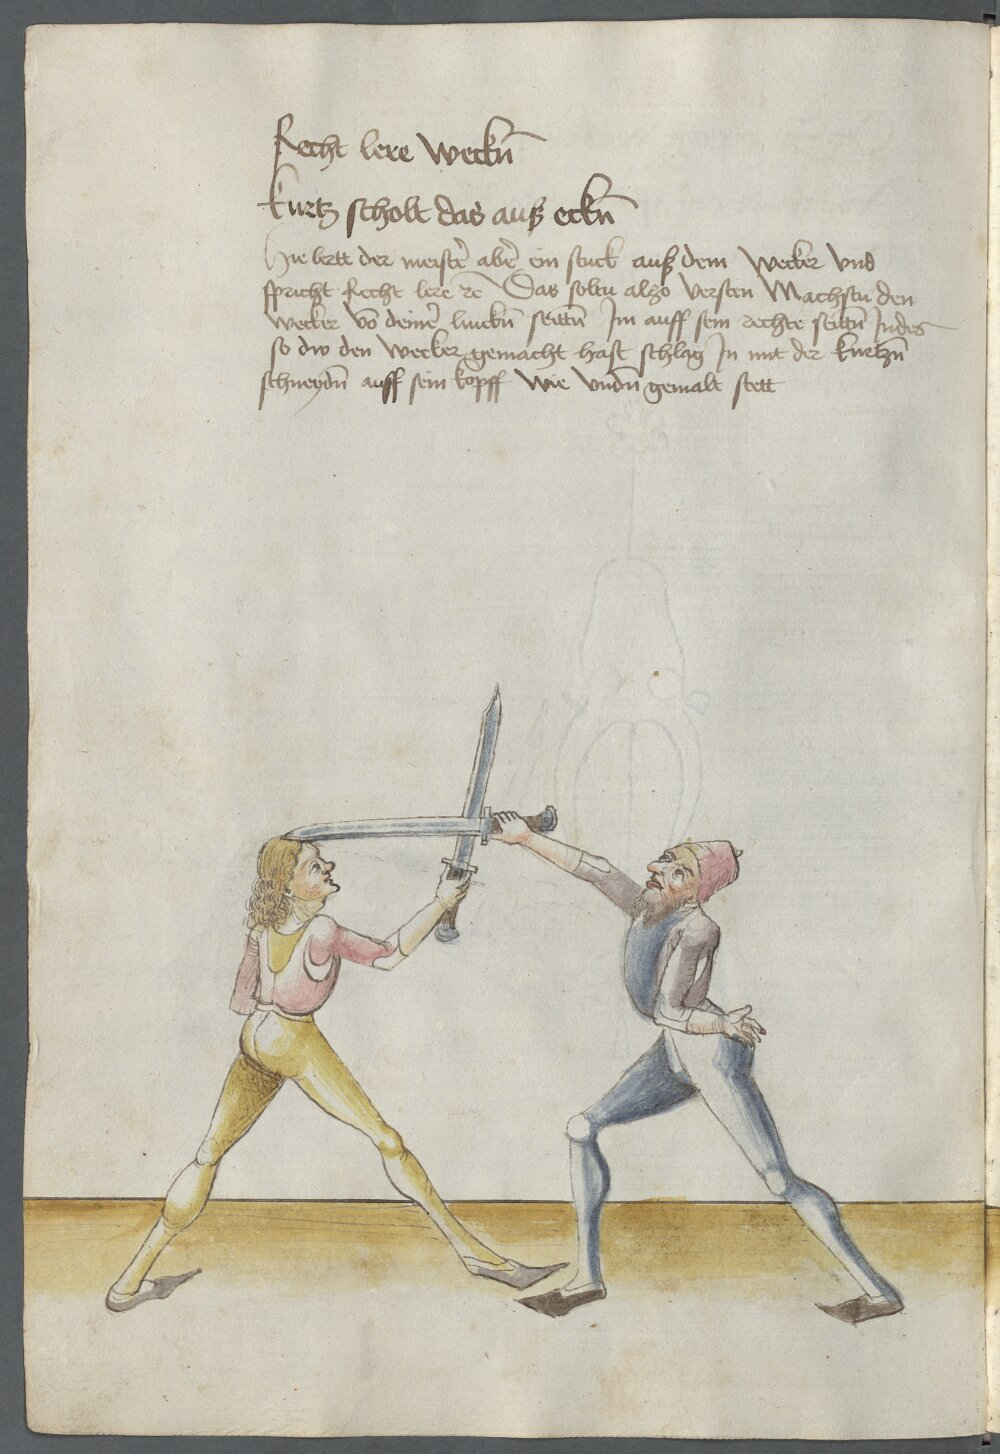 Recht lere weckñ
kurtz scholt das auß eckñ
Hie lertt der meister̃ aber̃ ein stuck auß dem wecker vnd
spricht Recht lere ꝛc̃ Das soltu alßo versten Machstu den
wecker võ deiner̃ linckñ seittñ Im auff sein rechte seittñ Indes
so dw den wecker gemacht hast schlag In mit der kurtzñ
schneydñ auff sein kopff wie vndñ gemalt stett